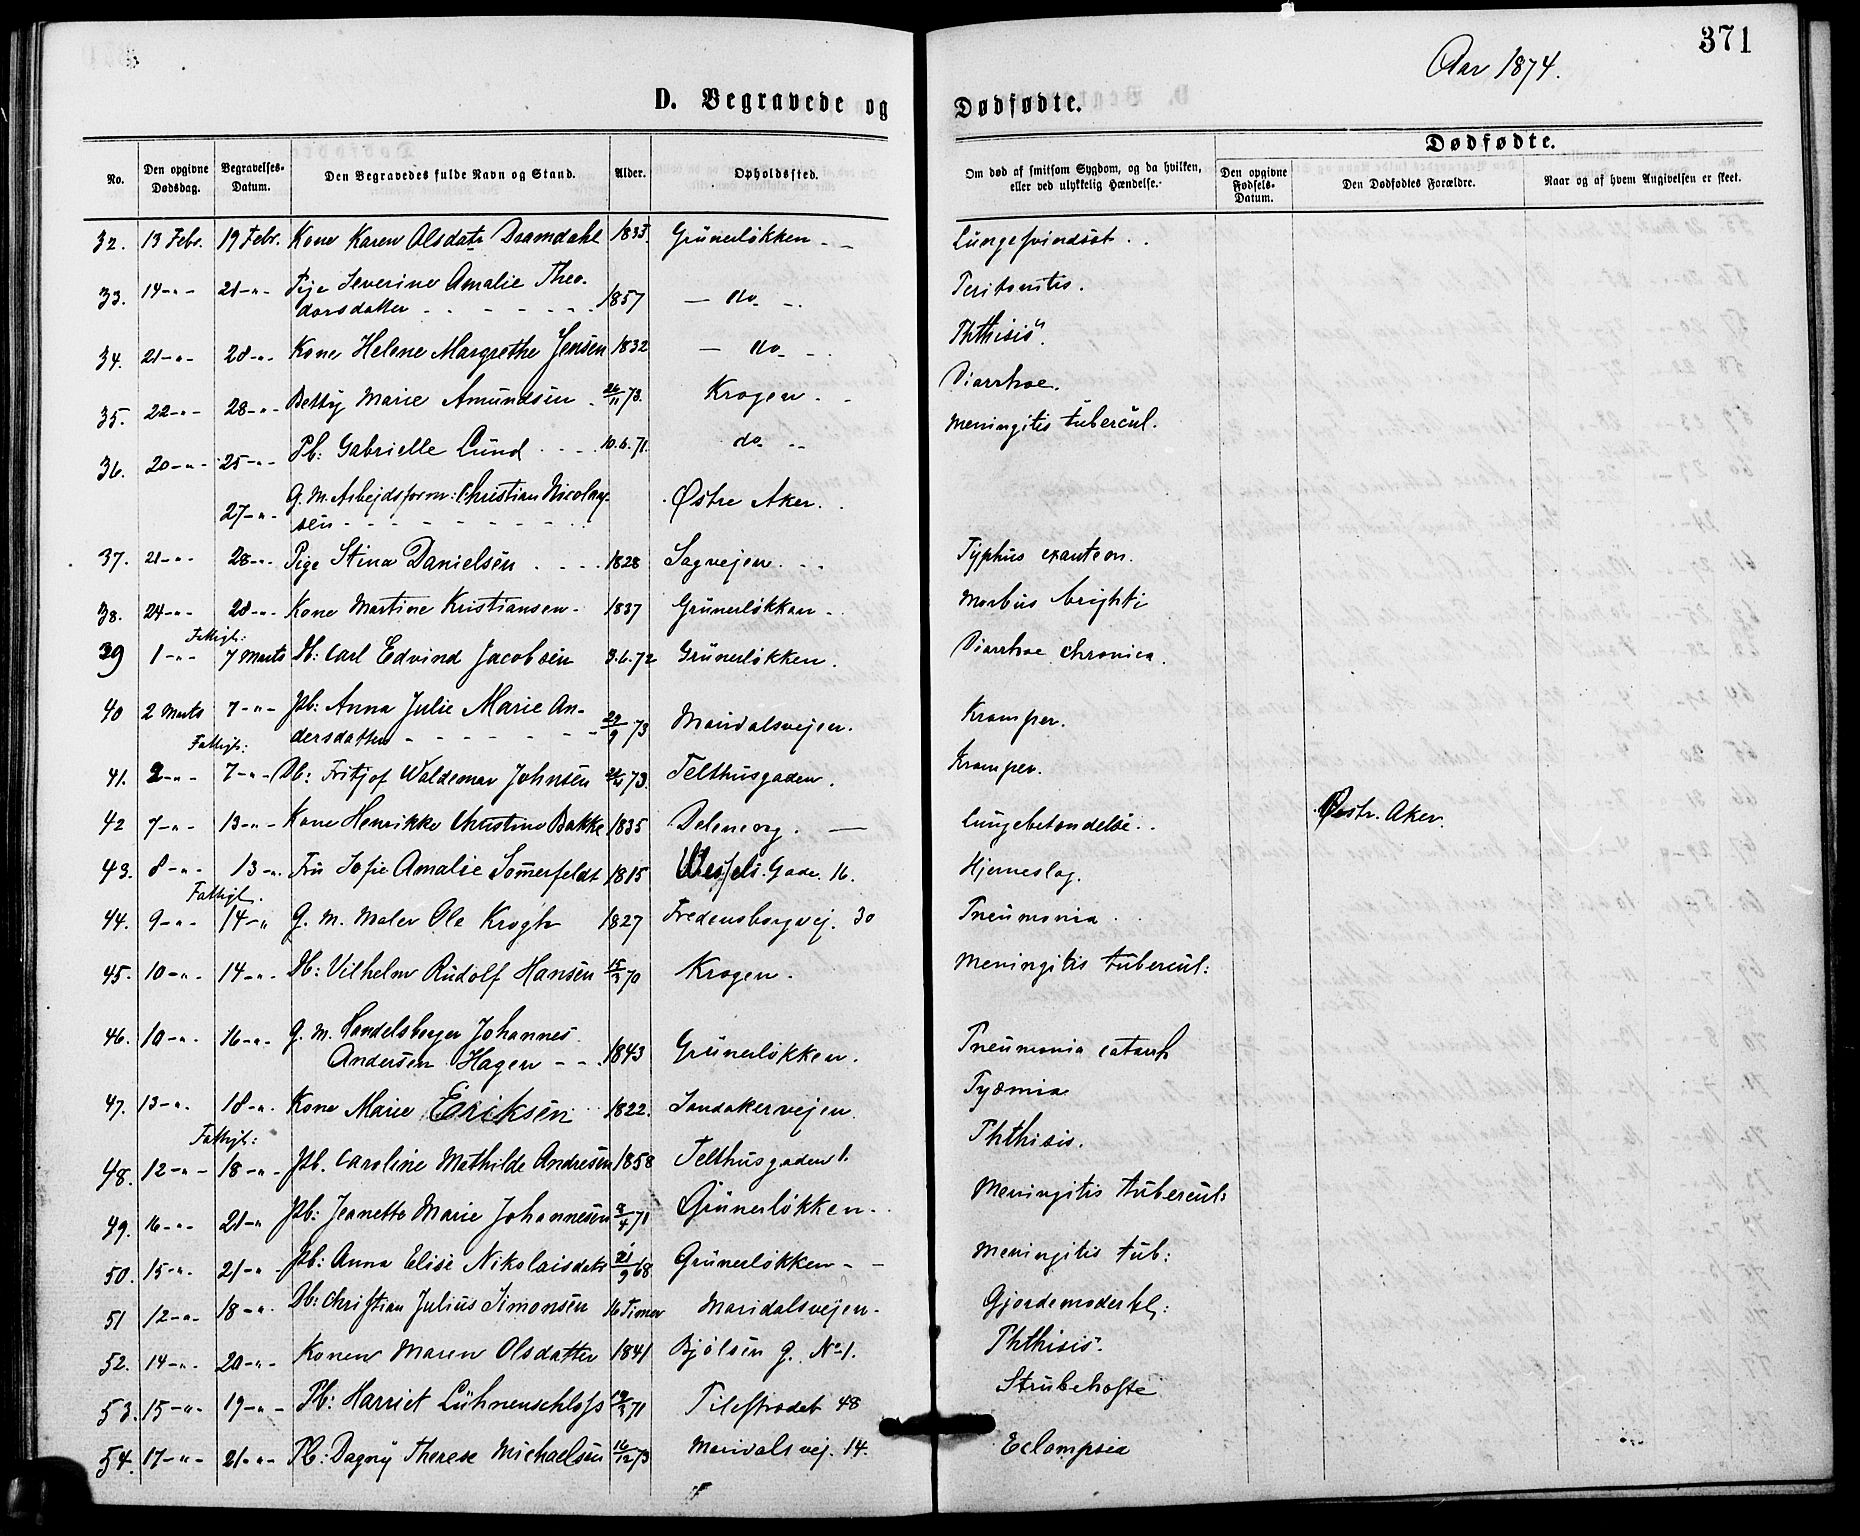 371
Aar 1874.
D. Begravede og Dødfødte.
No. | Den opgivne Dødsdag. | Begravelses-Datum. | Den Begravedes fulde Navn og Stand. | Alder. | Opholdssted. | Om død af smitsom Sygdom, og da hvilken, eller ved ulykkelig Hændelse. | Dødfødte. | Den opgivne Fødsels-Datum. | Den Dødfødtes Forældre. | Naar og af hvem Angivelsen er skeet.
32. 13 Febr. 19 Febr. Kone Karen Olsdatr Dramdahl 1835. Grünerløkken - - Lungesvindsot . .
33. 14-"- 21-"- Pige Severine Amalie Theo-
dorsdatter - - - - - - 1857 - do - - Peritonitis.
34. 21-"- 28-"- Kone Helene Margrethe Jensen 1832 - do - - Phthisis.
35. 22-"- 28-"- Betty Marie Amundsen . 26/11 73. Krogen . - Diarrhoe.
36. 20-"- 25-"- Pb: Gabrielle Lund - - - 10.6.71. do - - Meningitis tubercul.
27-"- G. M. Arbejdsform: Christian Nicolay-
sen - - - - - - - - Østre Aker.
37. 21-"- 28-"- Pige Stina Danielsen . - - . 1828 Sagvejen. - - Typhus exantem.
38. 24-"- 28-"- Kone Martine Kristiansen - 1837 Grünerløkken - Morbus brighti
Fattigb:
39 1-"- 7 Marts Db: Carl Edvind Jacobsen 3.6.72 Grünerløkken. Diarrhoe chronica.
40 2 Marts 7-"- Pb: Anna Julie Marie An-
dersdatter - - - - - - - 29/9 73 Maridalsvejen. Kramper.
Fattigb:
41. 2-"- 7-"- Db: Fritjof Waldemar Johnsen 73. Telthusgaden. Kramper.
42 7-"- 13-"- Kone Henrikke Christine Bakke 1835 Delenerg. - Lungebetændelse. . Østr. Aker.
43. 8-"- 13-"- Fru Sofie Amalie Sommerfeldt 1815 Wessels Gade. 16. Hjerneslag.
Fattigb.
44. 9-"- 14-" G. M. Maler Ole Krogh 1827 Fredensborgvej. 30 Pneumonia . .
45. 10-"- 14-"- Db: Vilhelm Rudolf Hansen 15/3 70 Krogen. Meningitis tubercul:
46. 10-"- 16-"- G. M. Handelsborger Johannes
Andersen Hagen - - . 1843 Grünerløkken. Pneumonia catarrh
47. 13-"- 18-"- Kone Marie Eriksen 1822. Sandakervejen. Pyæmia
Fattigb:
48. 12-"- 18-"- Pb. Caroline Mathilde Andresen 1858 Telthusgaden 1. Phthisis.
49. 16-"- 21-" Pb: Jeanette Marie Johannesen 8/4 71 Grünerløkken - Meningitis tubercul:
50. 15-"- 21-"- Pb: Anna Elise Nikolaisdatr 21/9 68 Grünerløkken - - Meningitis tub:
51 12-"- 18-"- Db: Christian Julius Simonsen 16 Timer Maridalsvejen - Gjordemoderbl:
52. 14-"- 20-"- Konen Maren Olsdatter 1841 Bjølsen G. No 1. Phthisis.
53. 15-"- 19-"- Pb: Harriet Lühnenschloss 19/3 71 Pilestrædet 48 Strubehoste
54. 17-"- 21-"- Pb: Dagny Therese Michaelsen 16/12 73 Maridalsvej. 14. Eclampsia